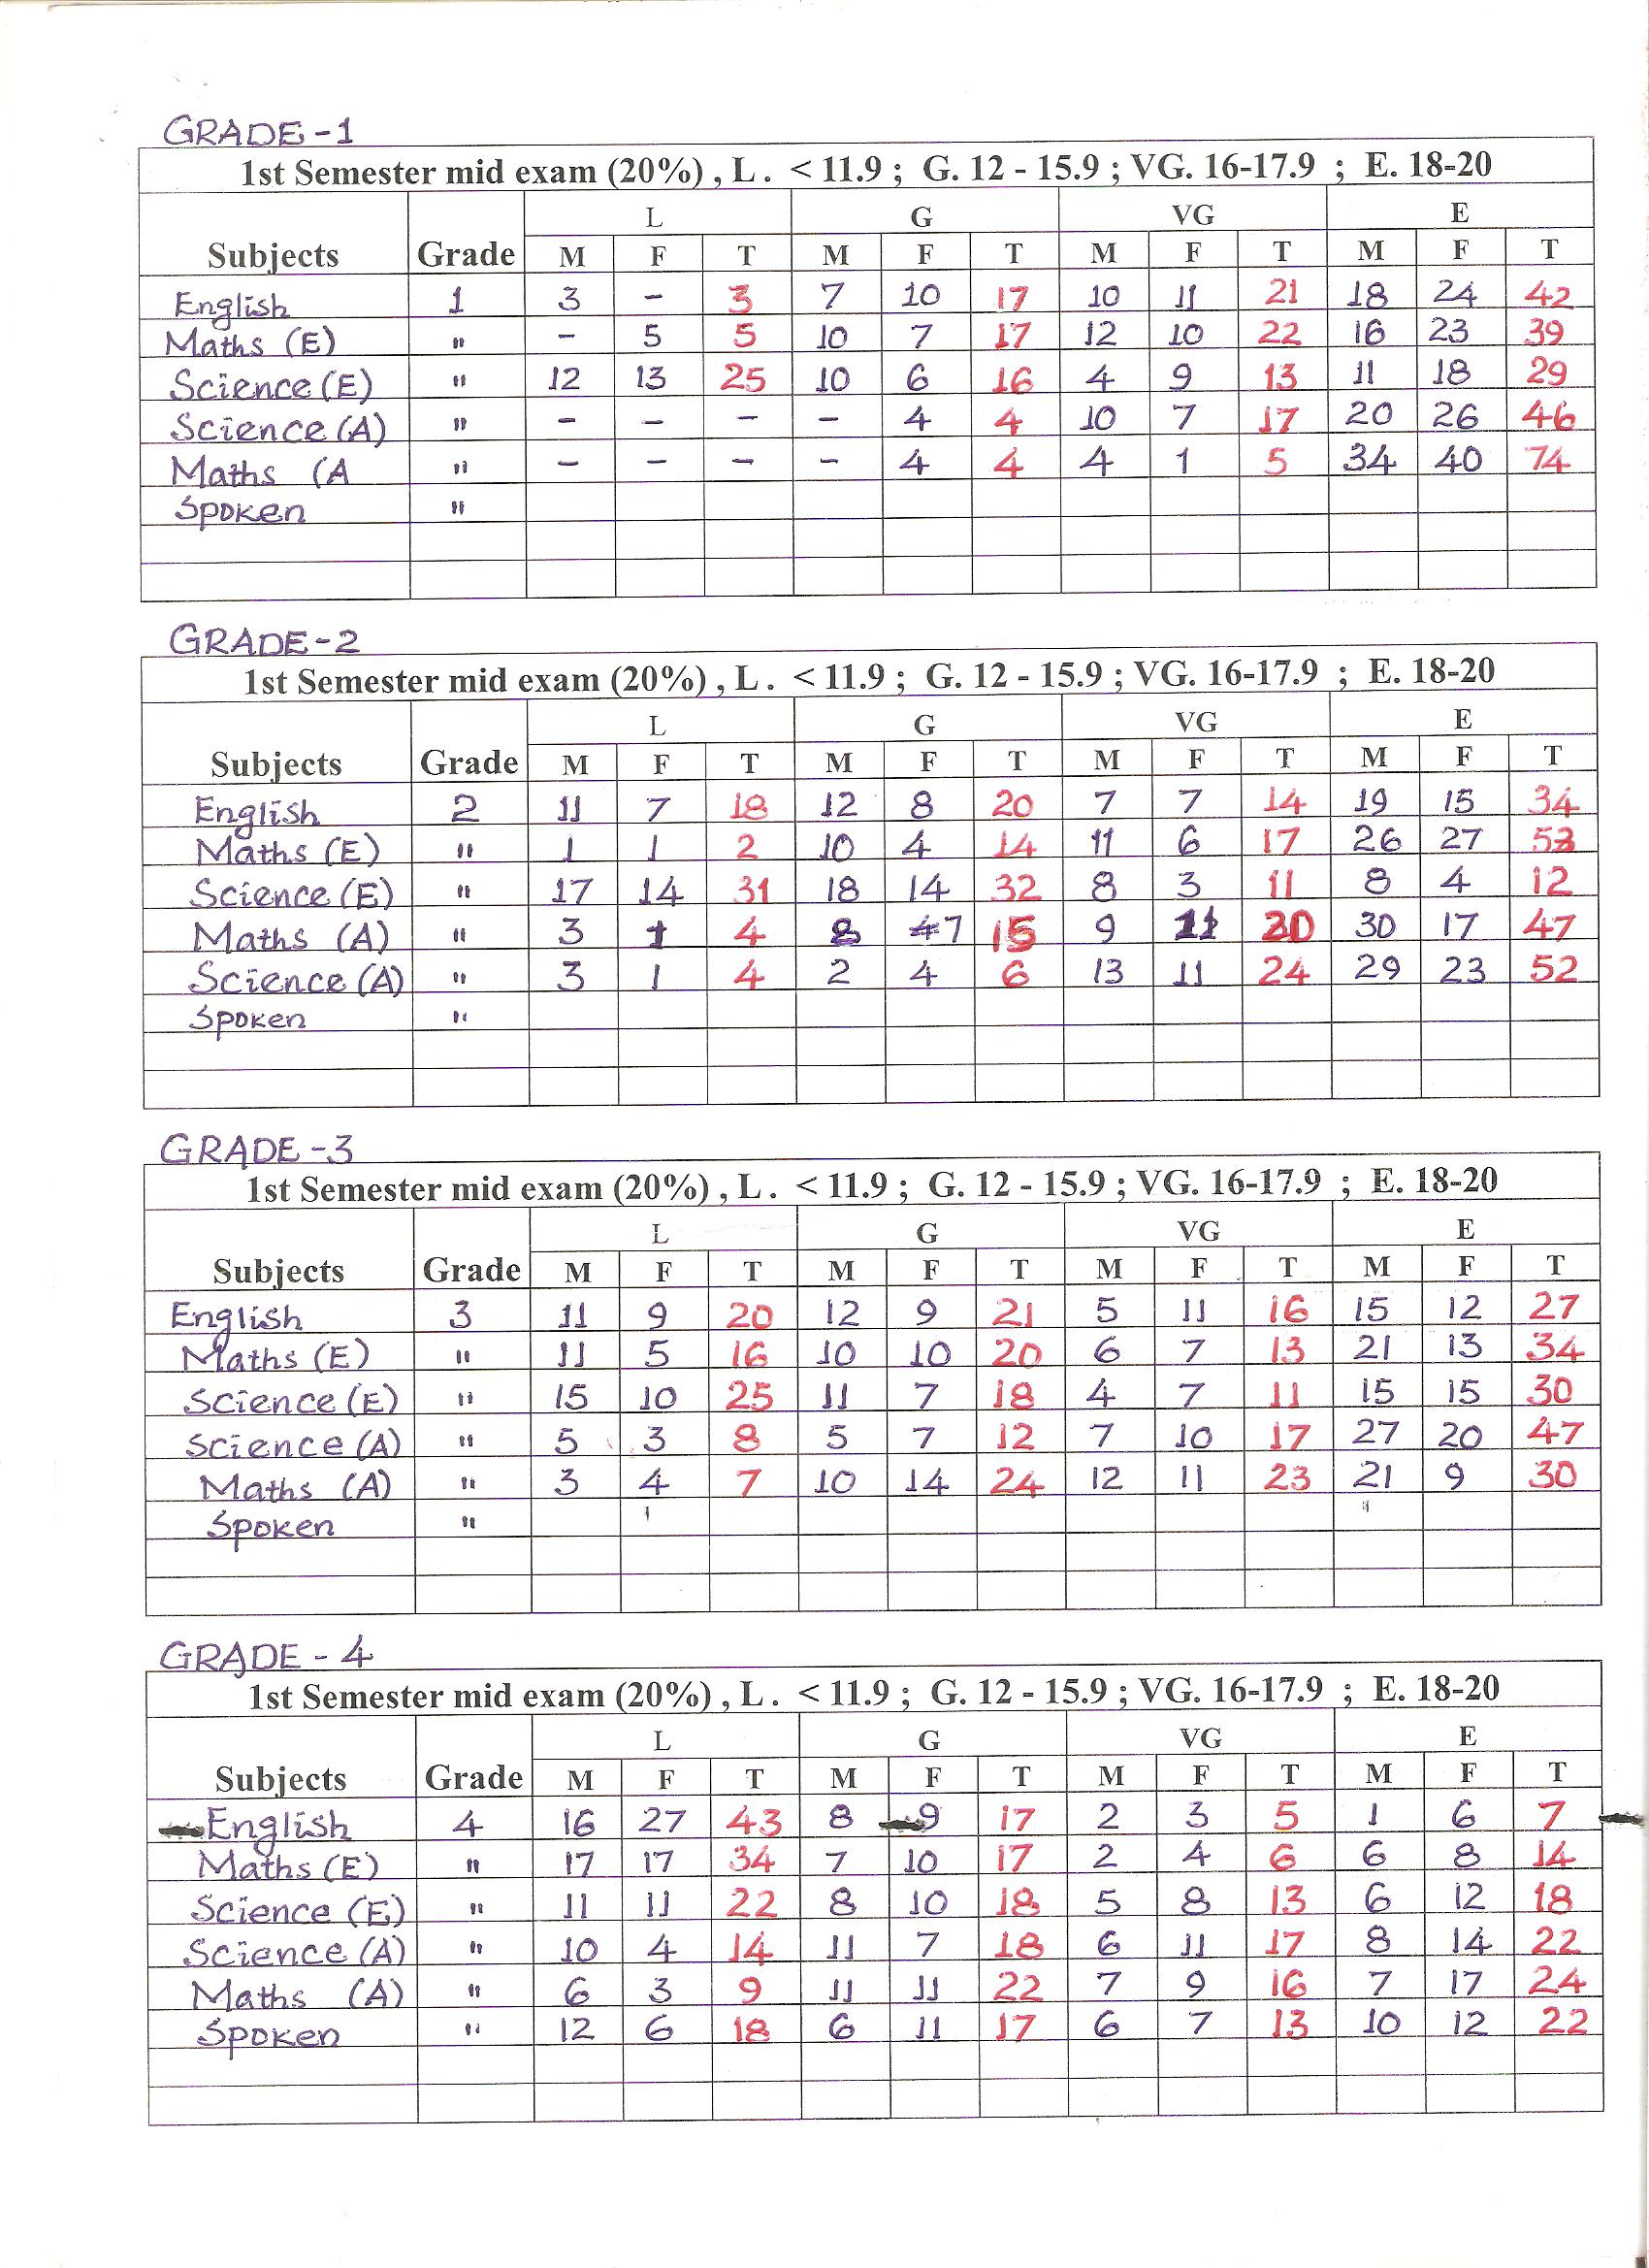 GRADE-1
1st Semester mid exam (20%) , L . < 11.9 ; G. 12 - 15.9 ; VG. 16-17.9 ; E. 18-20
L G VG E
Subjects Grade M F T M F T M F T M F T
English 1 3 - 3 7 10 17 10 11 21 18 24 42
Maths (E) " - 5 5 10 7 17 12 10 22 16 23 39
Science (E) " 12 13 25 10 6 16 4 9 13 11 18 29
Science (A) " - - - - 4 4 10 7 17 20 26 46
Maths (A " - - - - 4 4 4 1 5 34 40 74
Spoken "
GRADE-2
1st Semester mid exam (20%) , L . < 11.9 ; G. 12 - 15.9 ; VG. 16-17.9 ; E. 18-20
L G VG E
Subjects Grade M F T M F T M F T M F T
English 2 11 7 18 12 8 20 7 7 14 19 15 34
Maths (E) " 1 1 2 10 4 14 11 6 17 26 27 53
Science (E) " 17 14 31 18 14 32 8 3 11 8 4 12
Maths (A) " 3 1 4 8 7 15 9 11 20 30 17 47
Science (A) " 3 1 4 2 4 6 13 11 24 29 23 52
Spoken "
GRADE -3
1st Semester mid exam (20%) , L . < 11.9 ; G. 12 - 15.9 ; VG. 16-17.9 ; E. 18-20
L G VG E
Subjects Grade M F T M F T M F T M F T
English 3 11 9 20 12 9 21 5 11 16 15 12 27
Maths (E) " 11 5 16 10 10 20 6 7 13 21 13 34
Science (E) " 15 10 25 11 7 18 4 7 11 15 15 30
Science (A) " 5 3 8 5 7 12 7 10 17 27 20 47
Maths (A) " 3 4 7 10 14 24 12 11 23 21 9 30
Spoken "
GRADE - 4
1st Semester mid exam (20%) , L . < 11.9 ; G. 12 - 15.9 ; VG. 16-17.9 ; E. 18-20
L G VG E
Subjects Grade M F T M F T M F T M F T
English 4 16 27 43 8 9 17 2 3 5 1 6 7
Maths (E) " 17 17 34 7 10 17 2 4 6 6 8 14
Science (E) " 11 11 22 8 10 18 5 8 13 6 12 18
Science (A) " 10 4 14 11 7 18 6 11 17 8 14 22
Maths (A) " 6 3 9 11 11 22 7 9 16 7 17 24
Spoken " 12 6 18 6 11 17 6 7 13 10 12 22